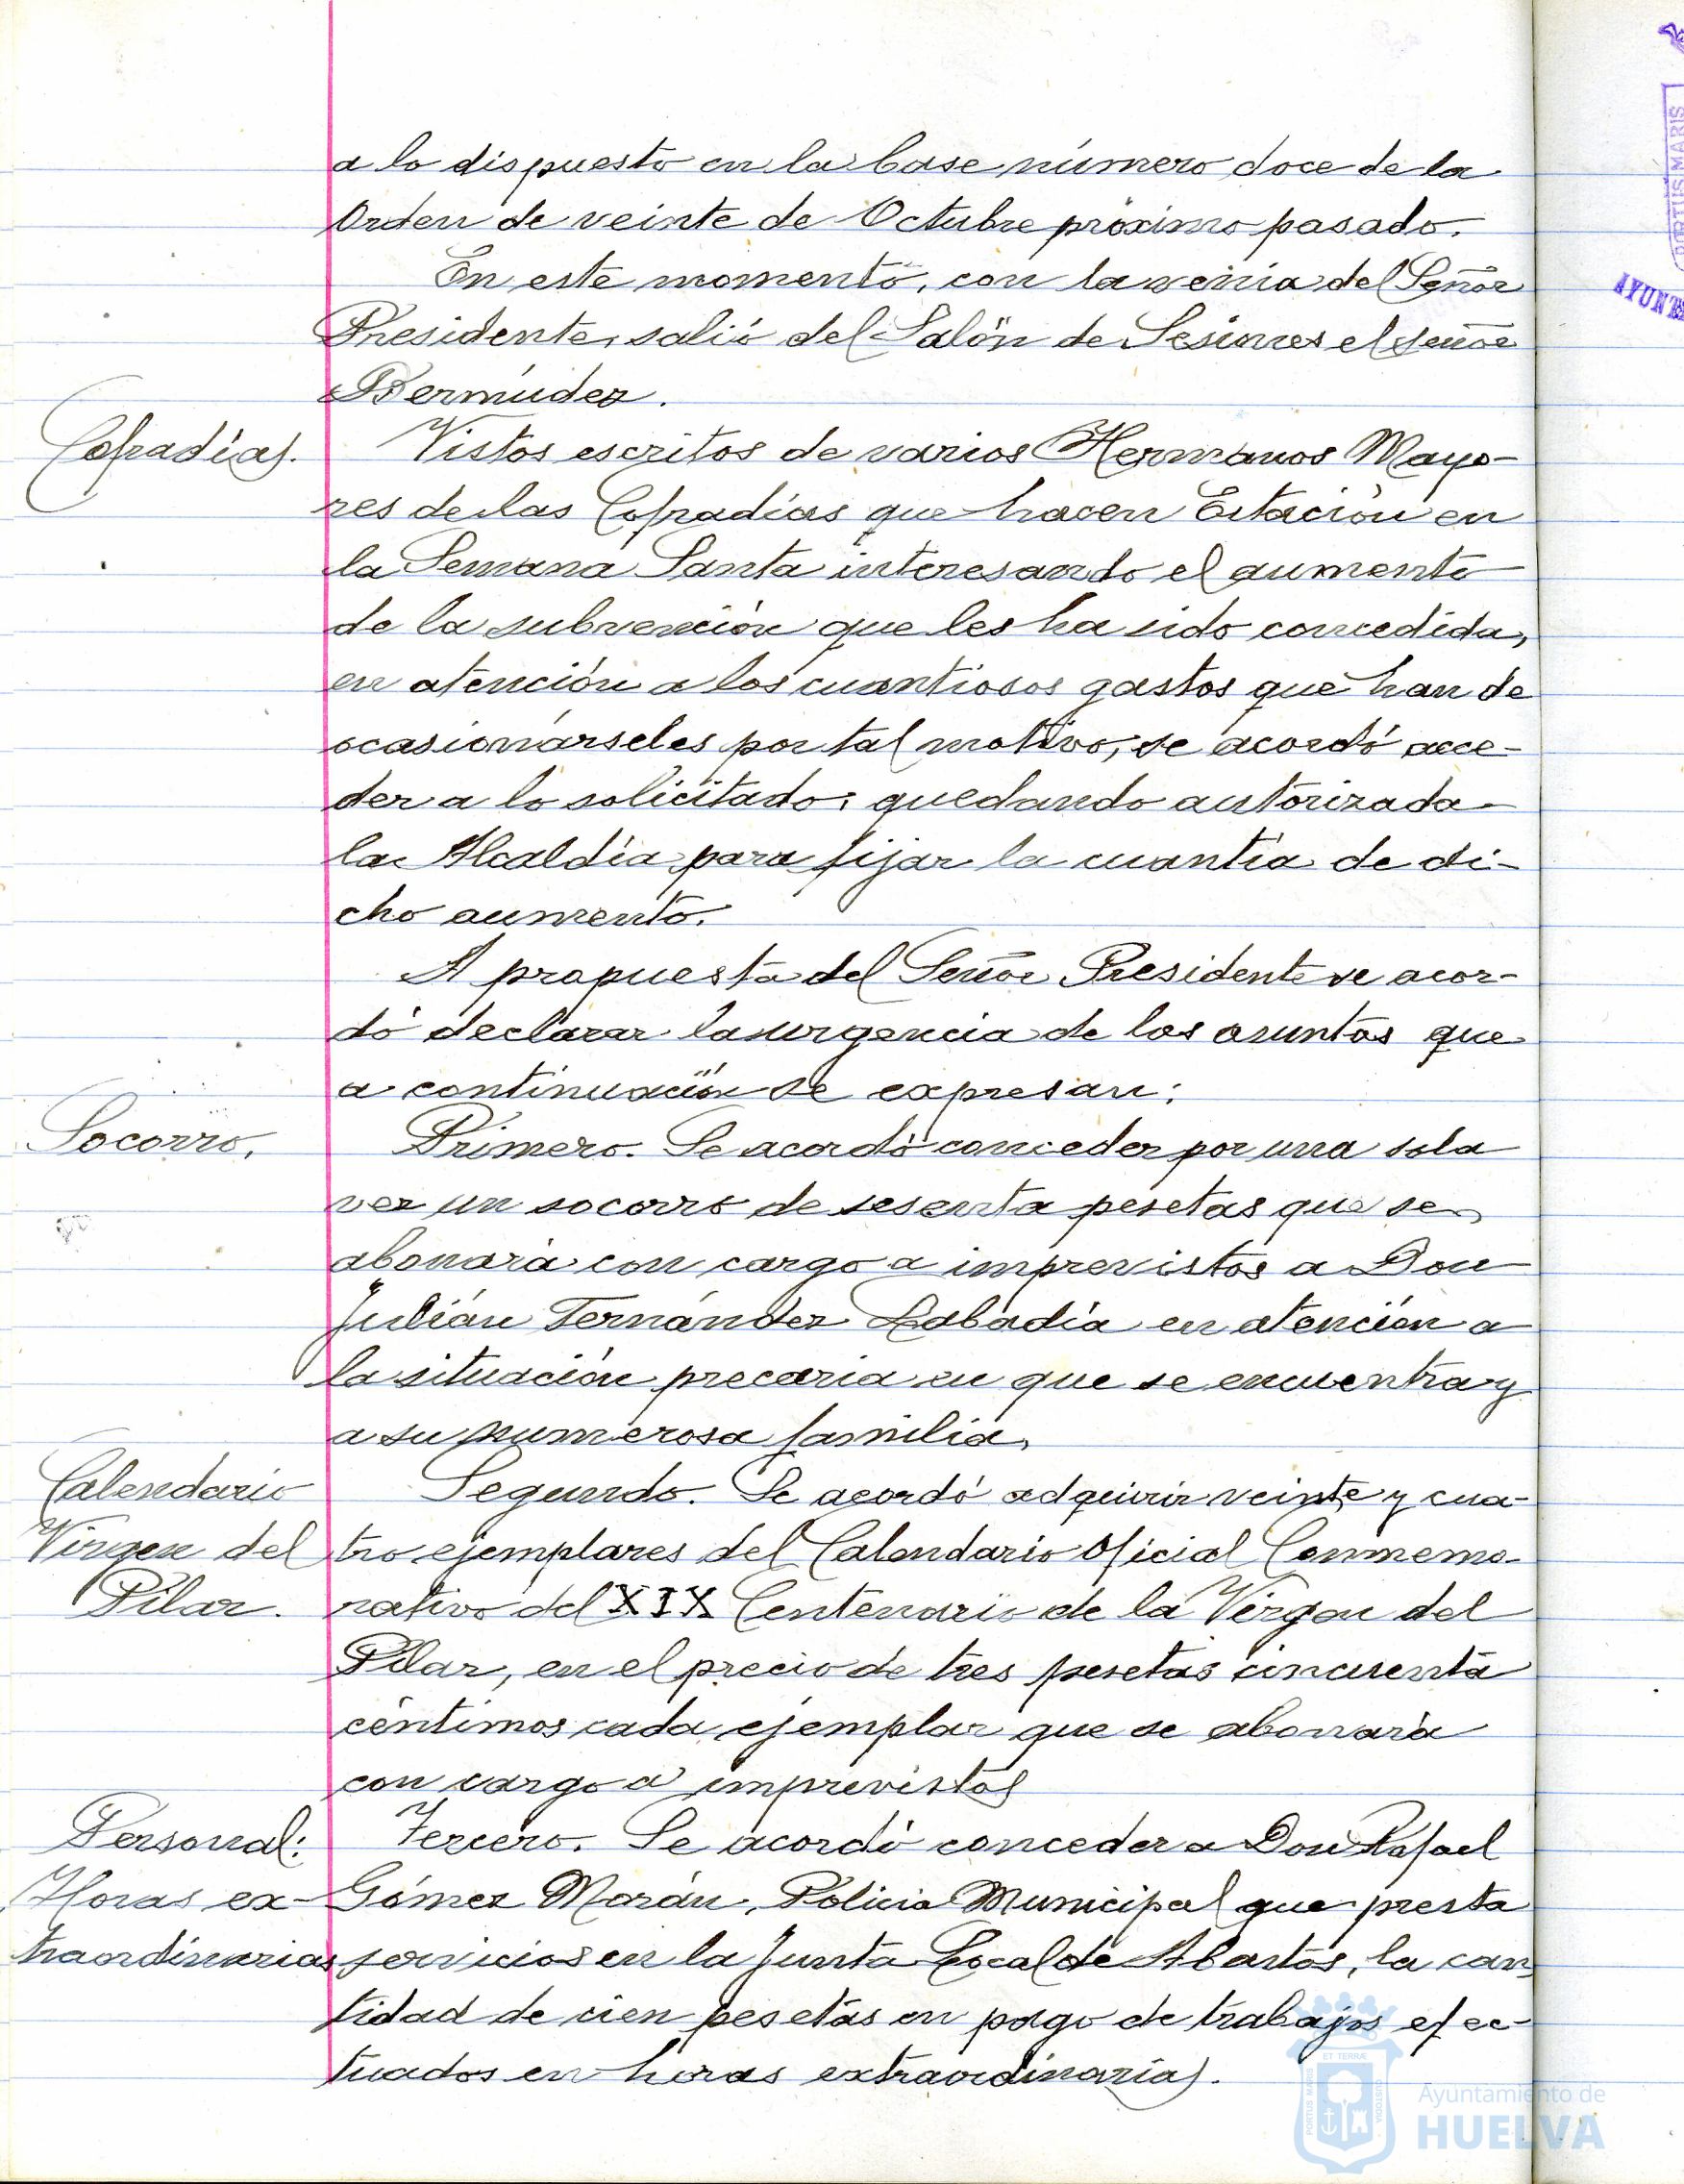 a lo dispuesto en la base número doce de la
Orden de veinte de Octubre próximo pasado.
En este momento, con la venia del Señor
Presidente, salió del Salón de Sesiones el señor
Bermúdez.
Cofradías.
Vistos escritos de varios Hermanos Mayo-
res de las Cofradías que hacen Estación en
la Semana Santa interesando el aumento
de la subvención que les ha sido concedida,
en atención a los cuantiosos gastos que han de
ocasionárseles por tal motivo, se acordó acce-
der a lo solicitado, quedando autorizada
la Alcaldía para fijar la cuantía de di-
cho aumento.
A propuesta del Señor Presidente se acor-
dó declarar la urgencia de los asuntos que
a continuación se expresan:
Socorro.
Primero. Se acordó conceder por una sola
vez un socorro de sesenta pesetas que se
abonará con cargo a imprevistos a Don
Julián Fernández Labadía en atención a
la situación precaria en que se encuentra y
a su numerosa familia.
Calendario
Virgen del
Pilar.
Segundo. Se acordó adquirir veinte y cua-
tro ejemplares del Calendario Oficial Conmemo-
rativo del XIX Centenario de la Virgen del
Pilar, en el precio de tres pesetas cincuenta
céntimos cada ejemplar que se abonará
con cargo a imprevistos
Personal:
Horas ex-
traordinarias
Tercero. Se acordó conceder a Don Rafael
Gómez Morán, Policía Municipal que presta
servicios en la Junta Local de Abastos, la can
tidad de cien pesetas en pago de trabajos efec-
tuados en horas extraordinarias.
PORTUS MARIS
AYUNT
ET TERRÆ
PORTUS MARIS
CUSTODIA
Ayuntamiento de
HUELVA